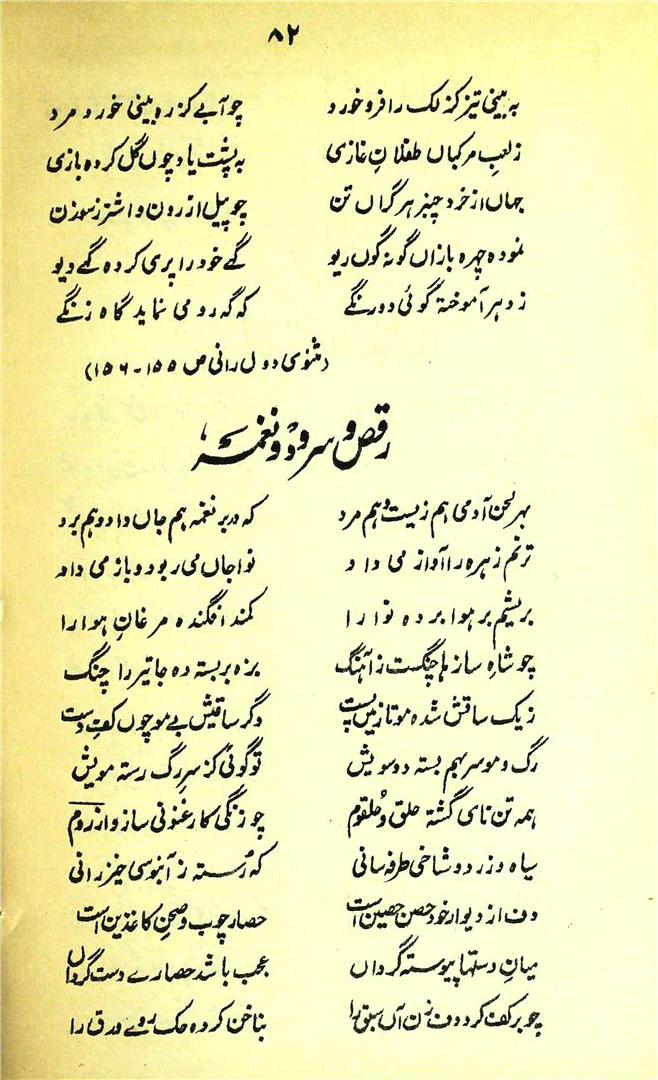 ۸۲
به بینی تیز کزلک را فرو خورد چو آبے کز ره بینی خورد مرد
ز لعبِ مرکباں طفلانِ غازی به پشت باد چوں گل کرده بازی
جهاں از خرد چیز هر گراں تن چو پیل از رون و اشتر ز سوزن
نموده چهره بازاں گونه گوں ریو گهے خود را پری کرده گهے دیو
ز دهر آموخته گوئی دورنگے که گه رومی نماید گاه زنگے
(مثنوی دول رانی ص ۱۵۵-۱۵۶)
رقص و سرود و نغمه
بهر لحن آدمی هم زیست و هم مرد که در هر نغمه هم جاں داد و هم برد
ترنم زهره را آواز می داد نوا جاں می ربود و باز می داد
بریشم بر هوا برده نوا را کمند افگنده مرغانِ هوا را
چو شاهِ سازها چنگست ز آهنگ بزه بر بسته ده جا تیر را چنگ
ز یک ساقش شده مو تا زمیں پست دگر ساقیش بے مو چوں کفِ دست
رگ و مو سر بهم بسته دو سویش تو گوئی کز سرِ رگ رسته مویش
همه تن نای گشته حلق و حلقوم چو زنگی کارغنونی سازد از روم
سیاه و زرد و شاخی طرفه سانی که رُسته ز آبنوسی خیزرانی
دف از دیوارِ خود حصن حصین است حصار چوب و صحن کاغذین است
میانِ دستها پیوسته گرداں عجب باشد حصارے دست گرداں
چو بر کف کرد دف زن آں سبق را بناخن کرده حک روے ورق را